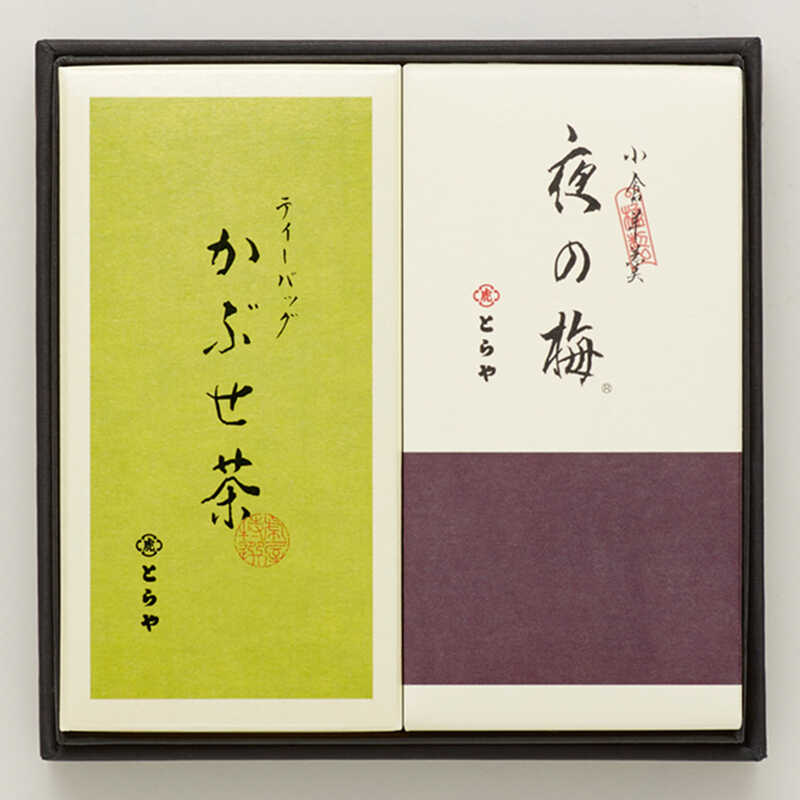 小倉羊羹
夜の梅
®
虎
とらや
ティーバッグ
かぶせ茶
虎
とらや